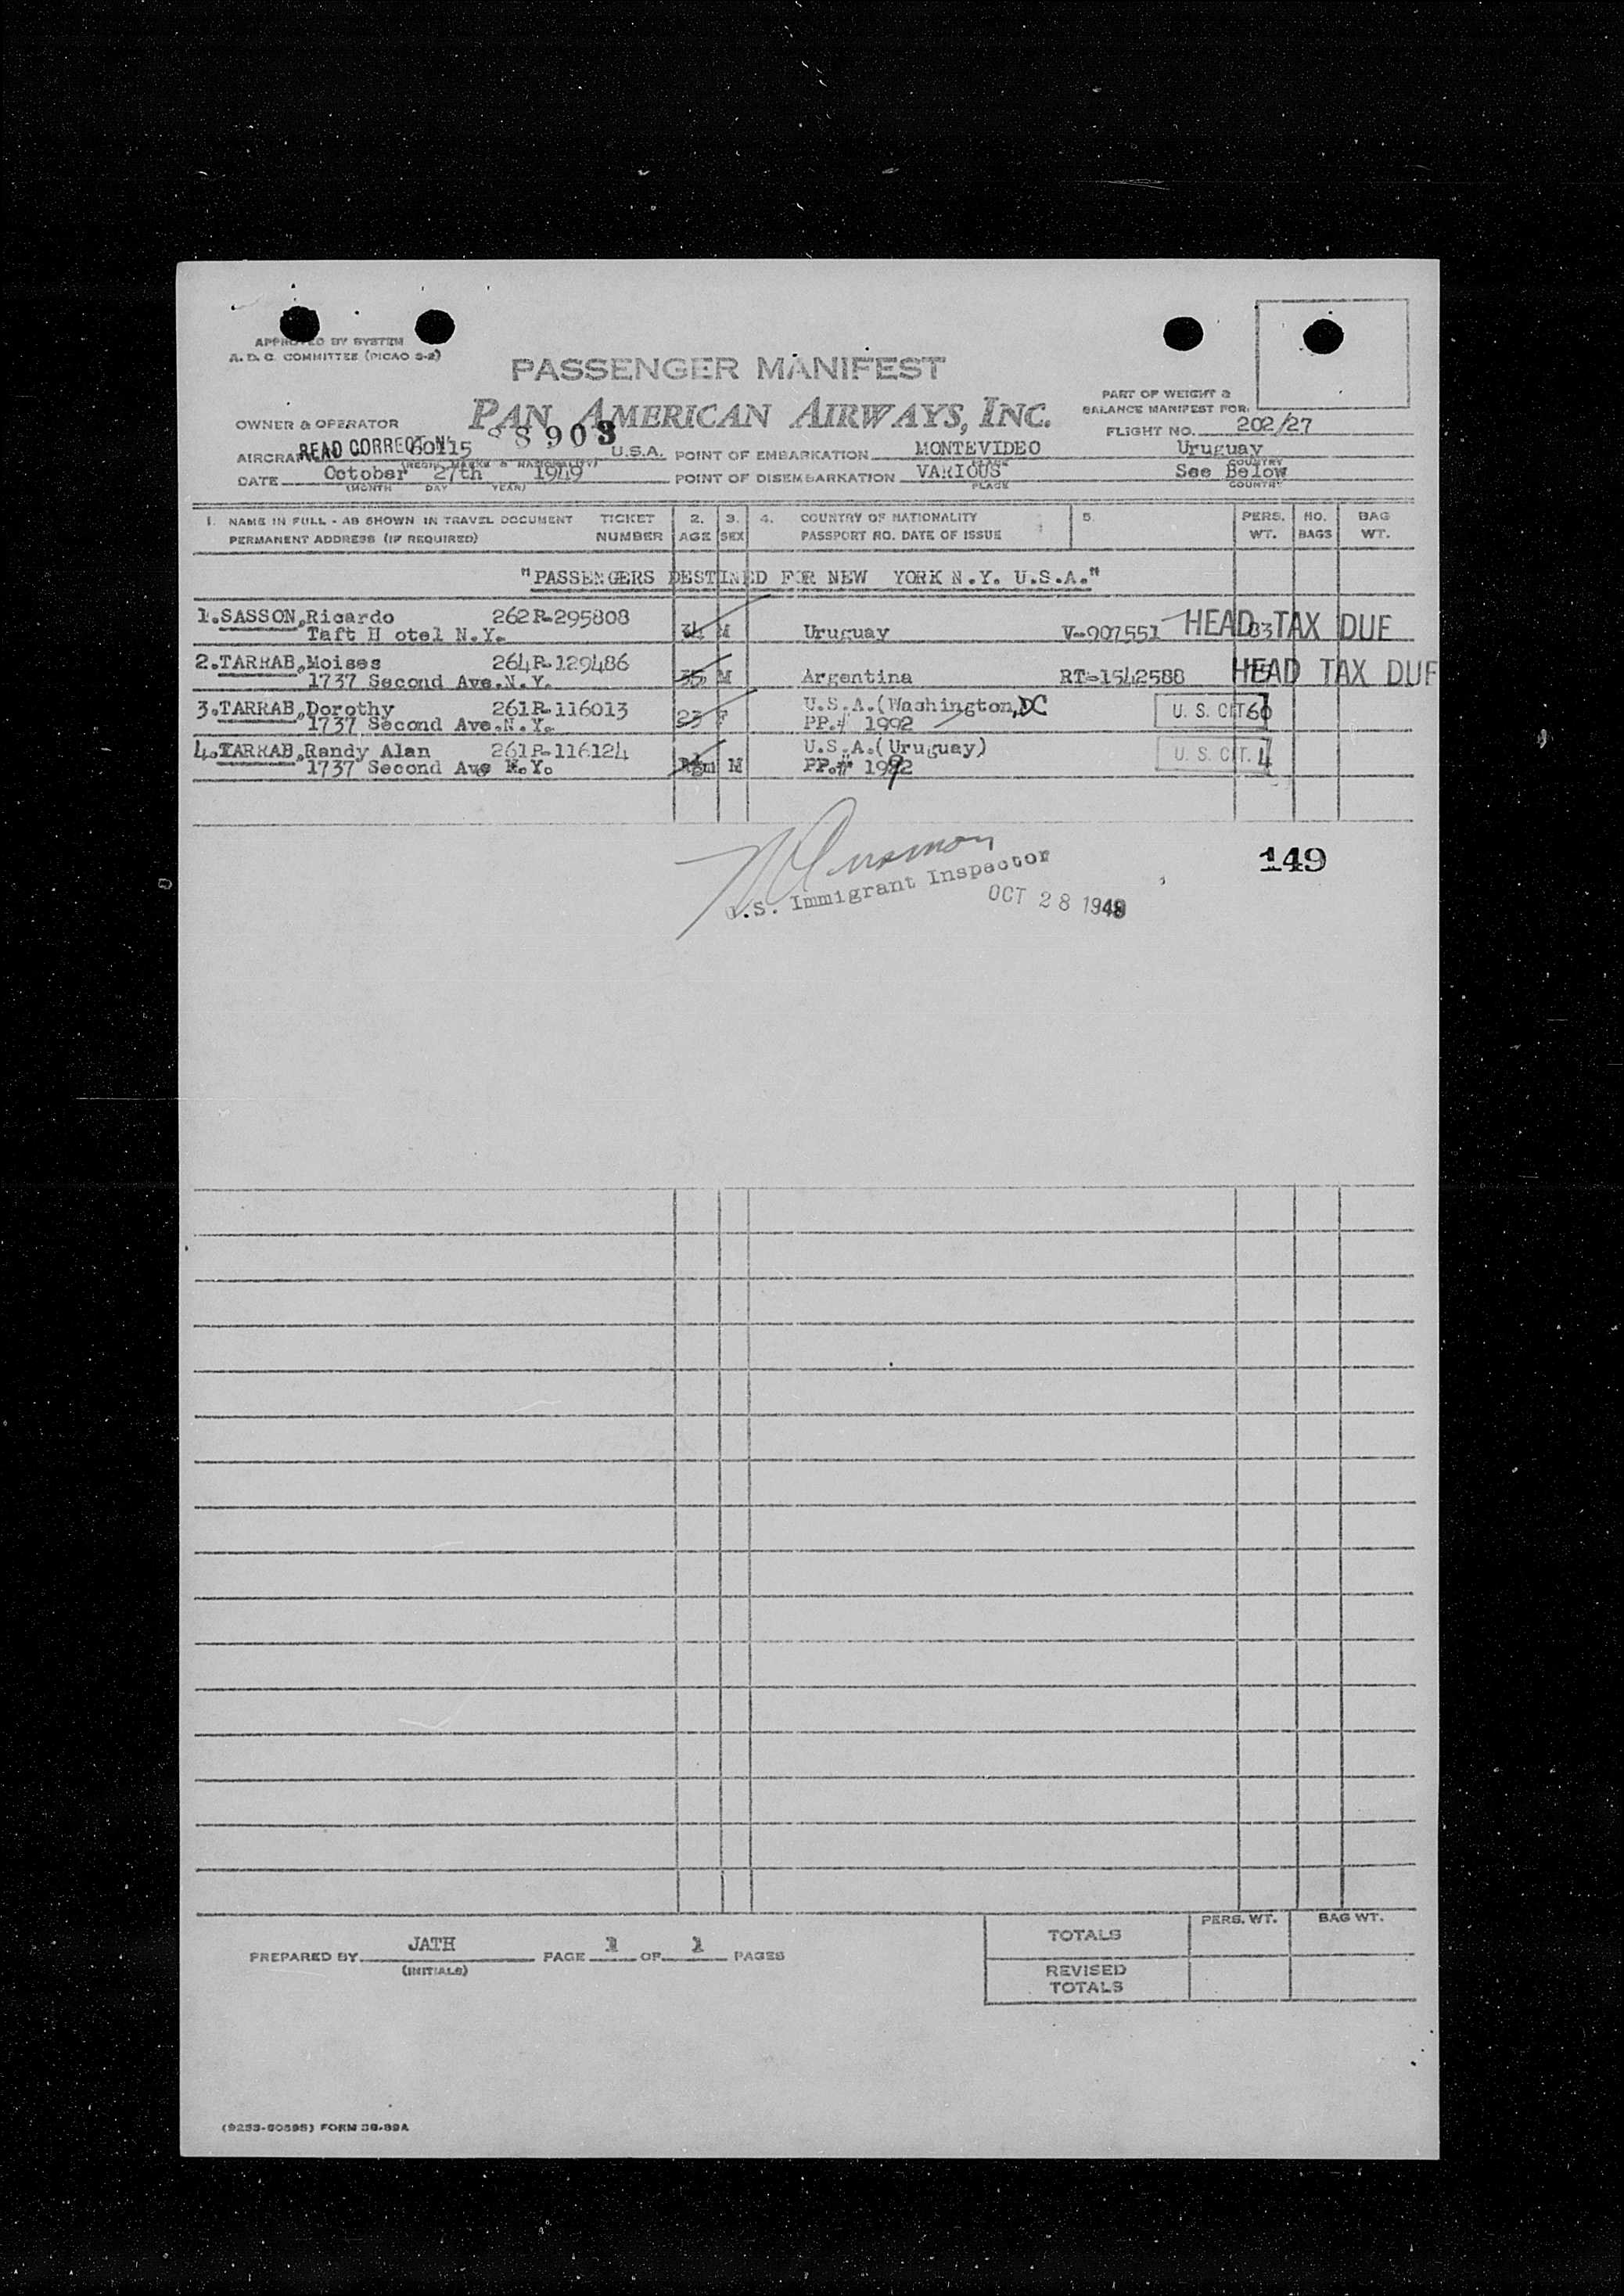 APPROVED BY SYSTEM
A. D. C. COMMITTEE (PICAO S-2)
PASSENGER MANIFEST
PART OF WEIGHT &
BALANCE MANIFEST FOR:
OWNER & OPERATOR PAN AMERICAN AIRWAYS, INC.
FLIGHT NO. 202/27
88903
READ CORRECT
AIRCRAFT U.S.A. POINT OF EMBARKATION MONTEVIDEO Uruguay
(REGIN. MARKS & NATIONALITY) PLACE COUNTRY
DATE October 27th 1949 POINT OF DISEMBARKATION VARIOUS See Below
(MONTH DAY YEAR) PLACE COUNTRY
1. NAME IN FULL - AS SHOWN IN TRAVEL DOCUMENT TICKET 2. 3. 4. COUNTRY OF NATIONALITY 5. PERS. NO. BAG
PERMANENT ADDRESS (IF REQUIRED) NUMBER AGE SEX PASSPORT NO. DATE OF ISSUE WT. BAGS WT.
"PASSENGERS DESTINED FOR NEW YORK N.Y. U.S.A."
1.SASSON,Ricardo 262R-295808
Taft H otel N.Y. 34 M Uruguay V-907551 83 HEAD TAX DUE
2.TARRAB,Moises 264R-129486
1737 Second Ave.N.Y. 35 M Argentina RT-1542588 HEAD TAX DUE
3.TARRAB,Dorothy 261R-116013 U.S.A.(Washington,DC
1737 Second Ave.N.Y. 23 F PP.# 1992 U. S. CIT. 60
4.TARRAB,Randy Alan 261R-116124 U.S.A.(Uruguay)
1737 Second Ave N.Y. M PP.# 1992 U. S. CIT. 4
149
U.S. Immigrant Inspector
OCT 28 1949
PERS. WT. BAG WT.
TOTALS
PREPARED BY JATH PAGE 1 OF 1 PAGES
(INITIALS)
REVISED
TOTALS
(9253-60595) FORM 38-89A